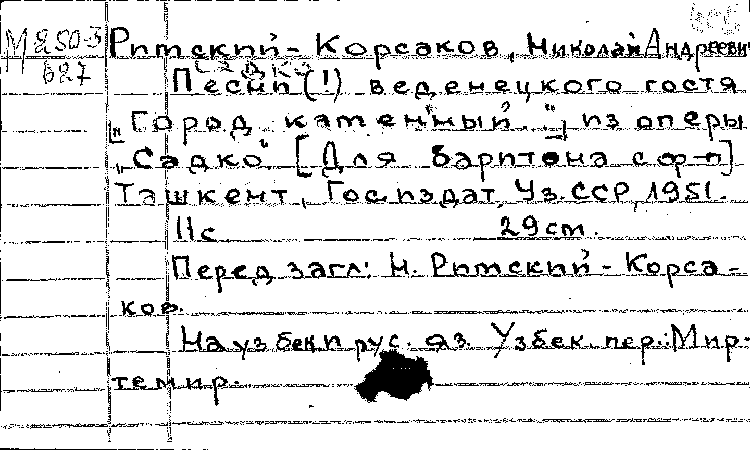 М 250-3
627
Римский-Корсаков, Николай Андреевич
Садко
Песни (!) веденецкого гостя
["Город каменный..."] из оперы
"Садко" [Для баритона с ф-п]
Ташкент, Госиздат УзССР, 1951.
11 с. 29 cm.
Перед загл: Н. Римский-Корса-
ков.
На узбек и рус. яз. Узбек. пер.: Мир-
темир.